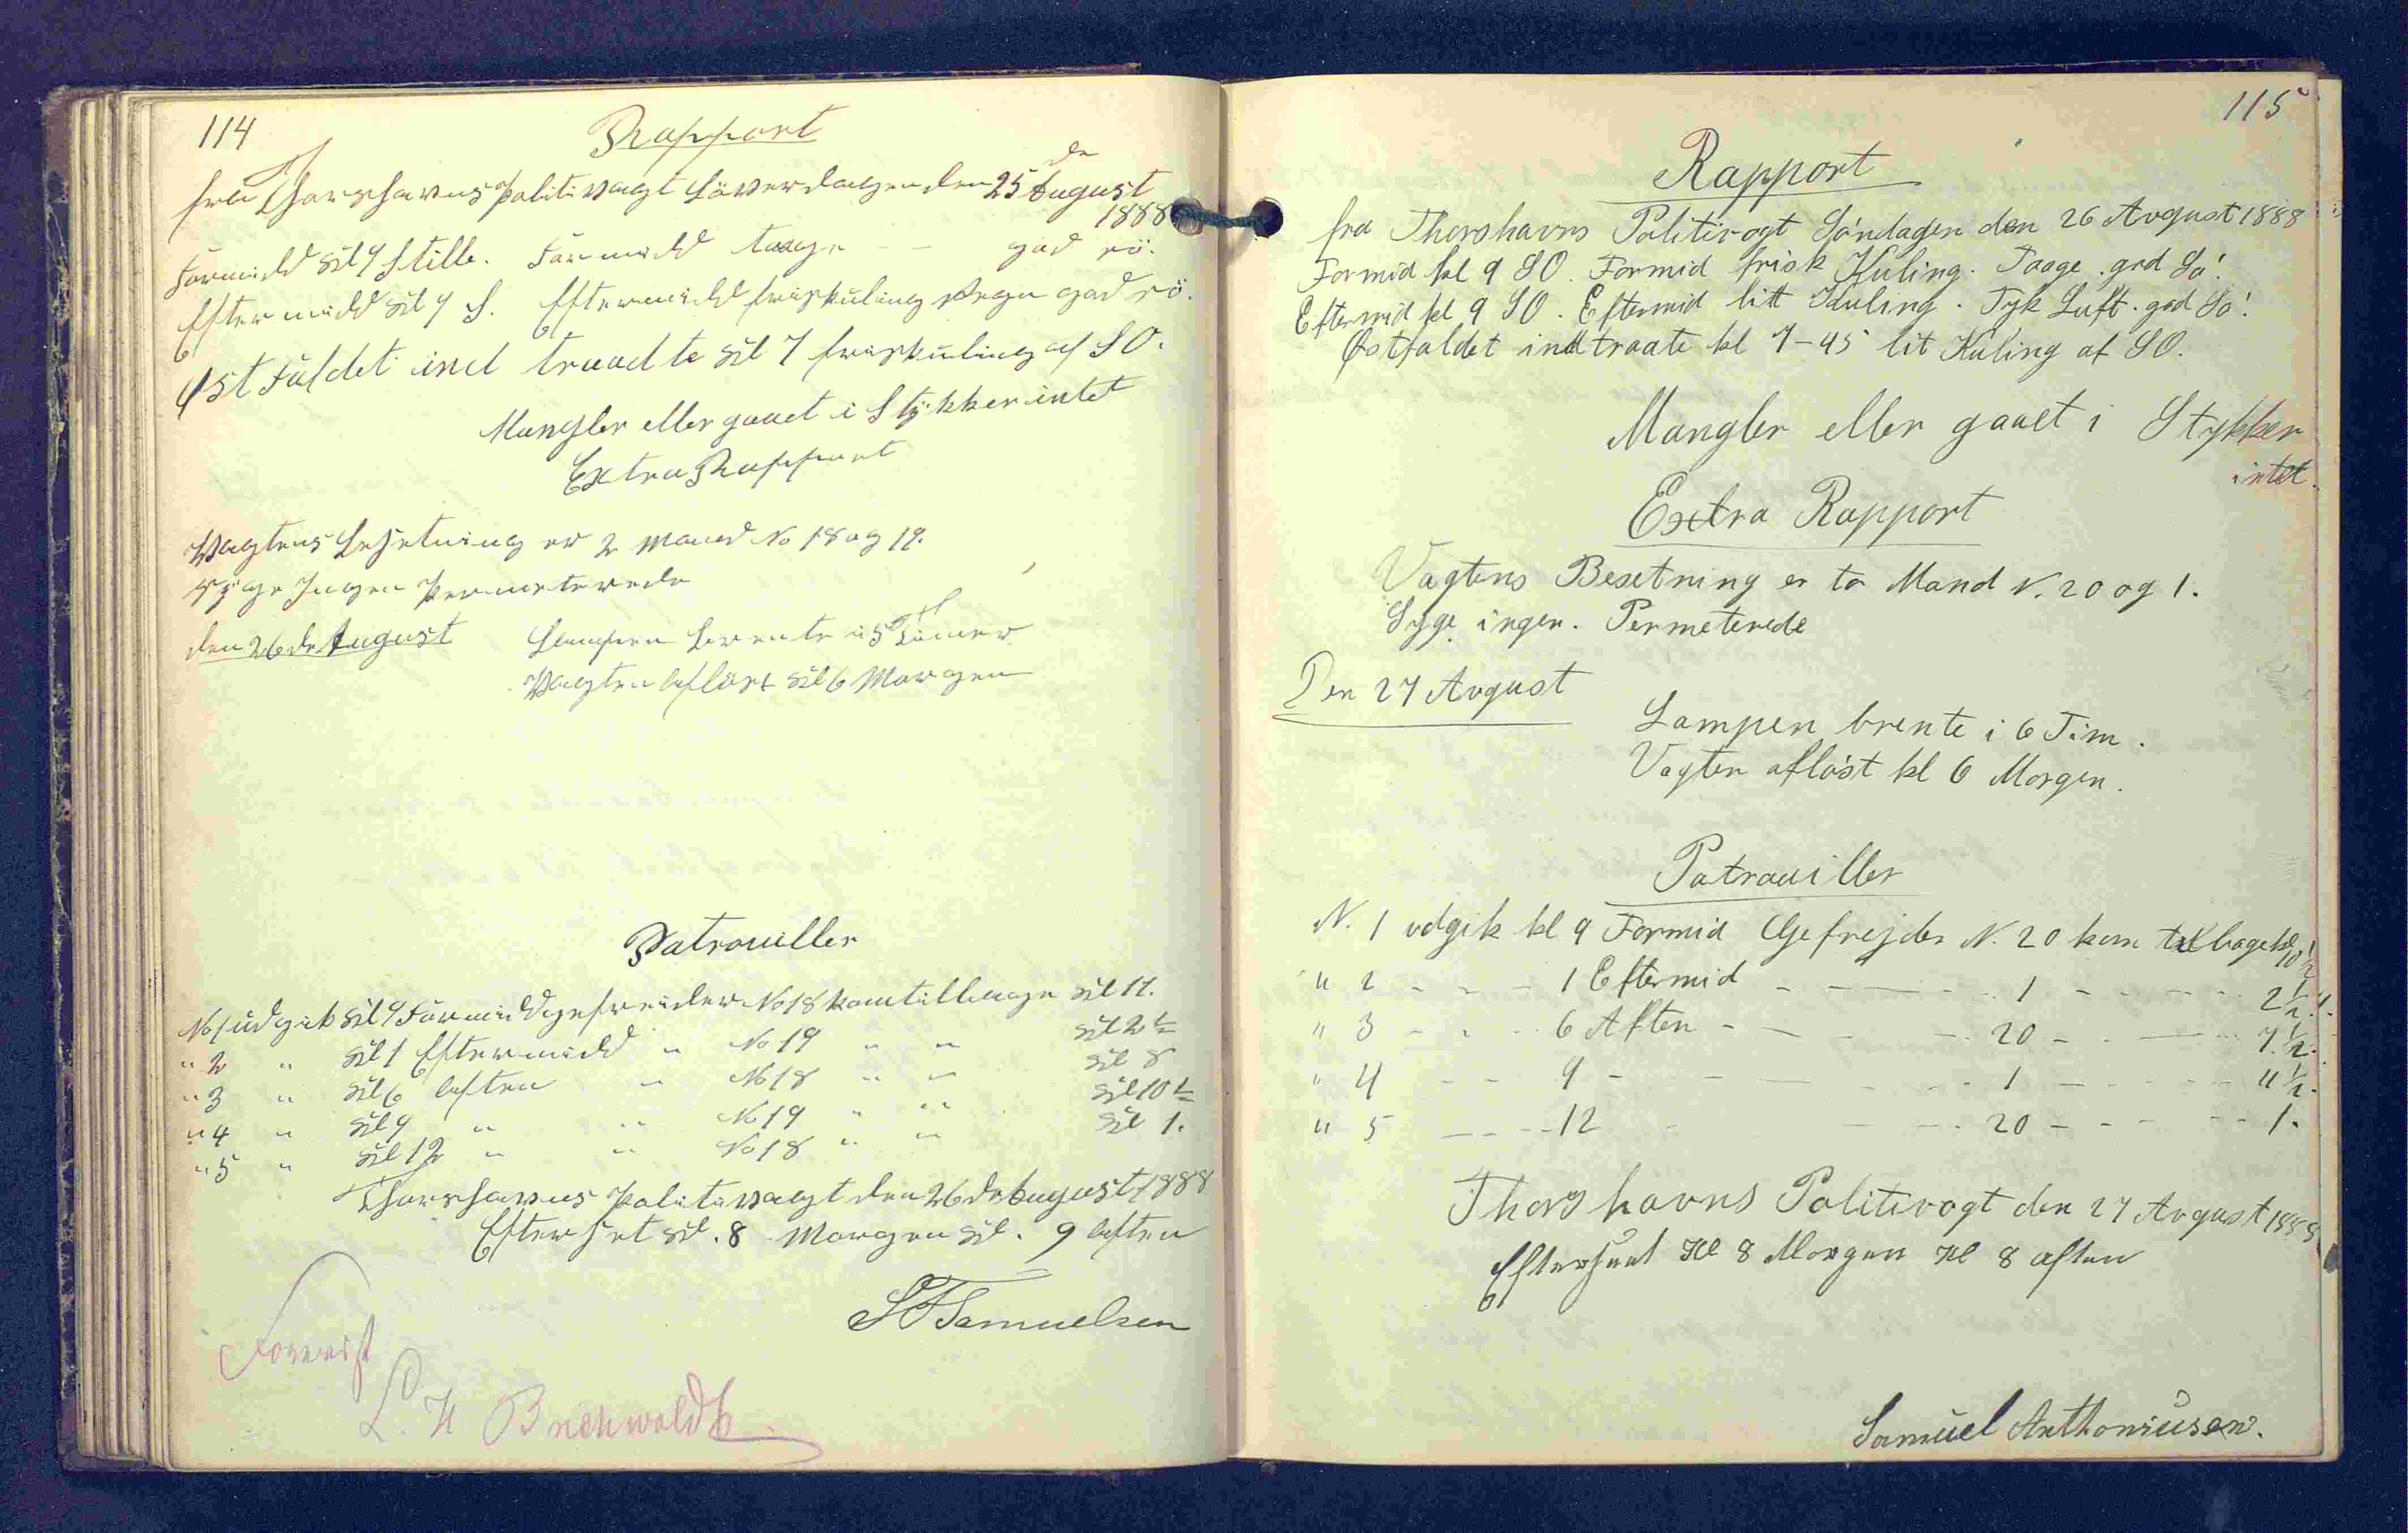 114
Rapport
fra Thorshavns Politivagt Löverdagen den 25 de August
1888
Formidd Kl 9 Stille. Formidd taage - - god sö.
Eftermidd Kl 9 S. Eftermidd friskuling Regn god sö.
Østfaldet ind traadte Kl 7 friskuling af SO.
Mangler eller gaaet i Stykker intet
Extra Rapport
Vagtens Besetning er 2 Mand No 18 og 19.
Syge Ingen Permeterede
den 26 de August Lampen brente i 5 Timer
Vagten aflöst Kl 6 Morgen
Patrouiller
No 1 udgik Kl 9 Formidd gefreider No 18 kom tilbage Kl 11.
" 2 " Kl 1 Eftermidd " No 19 " " Kl 2 1/2
" 3 " Kl 6 Aften " No 18 " " Kl 8
" 4 " Kl 9 " " No 19 " " Kl 10 1/2
" 5 " Kl 12 " " No 18 " " Kl 1.
Thorshavns Politivagt den 26 de August 1888
Efterset Kl. 8 Morgen Kl. 9 Aften
Samuelsen
Forevist
L. H. Buchwaldt
115
Rapport
fra Thorshavns Politivagt Söndagen den 26 August 1888
Formid kl 9 SO. Formid frisk Kuling. Taage. god Sö.
Eftermid kl 9 SO. Eftermid litt Kuling. Tyk Luft. god Sö.
Østfaldet indtraate kl 7-45 lit Kuling af SO.
Mangler eller gaaet i Stykker
intet.
Extra Rapport
Vagtens Besetning er to Mand N. 20 og 1.
Syge ingen. Permeterede
Den 27 August
Lampen brente i 6 Tim.
Vagten aflöst kl 6 Morgen.
Patrouiller
N. 1 udgik kl 9 Formid Gefrejder N. 20 kom tilbage kl 10 1/2
" 2 - - - 1 Eftermid - - - - 1 - - - - 2 1/2.
" 3 - - - 6 Aften - - - 20 - - - - 7 1/2.
" 4 - - 9 - - - - - 1 - - - - 11 1/2.
" 5 - - - 12 - - - 20 - - - - 1.
Thorshavns Politivagt den 27 August 1888
Efterseet Kl 8 Morgen Kl 8 aften
Samuel Anthoniusen.